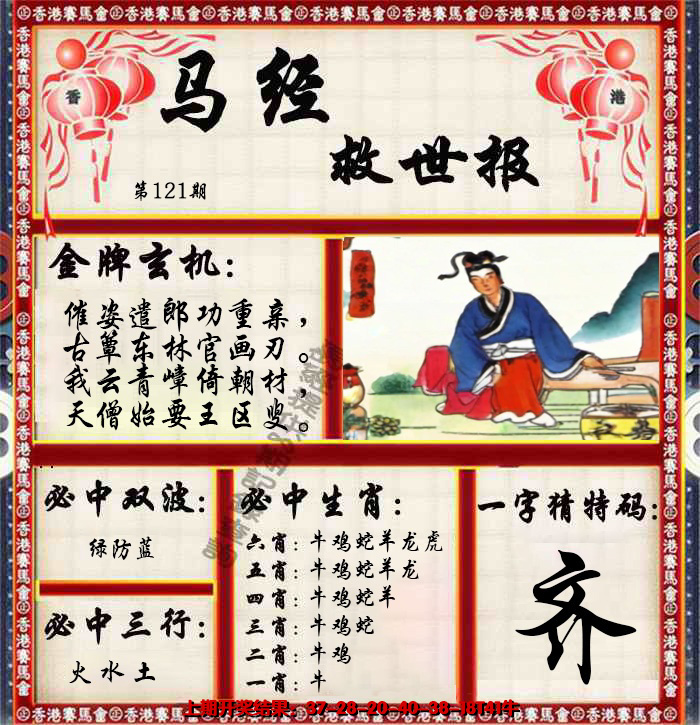 香港賽馬會
香
港
马经
救世报
第121期
金牌玄机：
催姿遣郎功重亲，
古蕈东林官画刃。
我云青嶂倚朝材，
天僧始要王区叟。
必中双波：
绿防蓝
必中三行：
火水土
必中生肖：
六肖：牛鸡蛇羊龙虎
五肖：牛鸡蛇羊龙
四肖：牛鸡蛇羊
三肖：牛鸡蛇
二肖：牛鸡
一肖：牛
一字猜特码：
齐
上期开奖结果：37-28-20-40-38-18T41牛